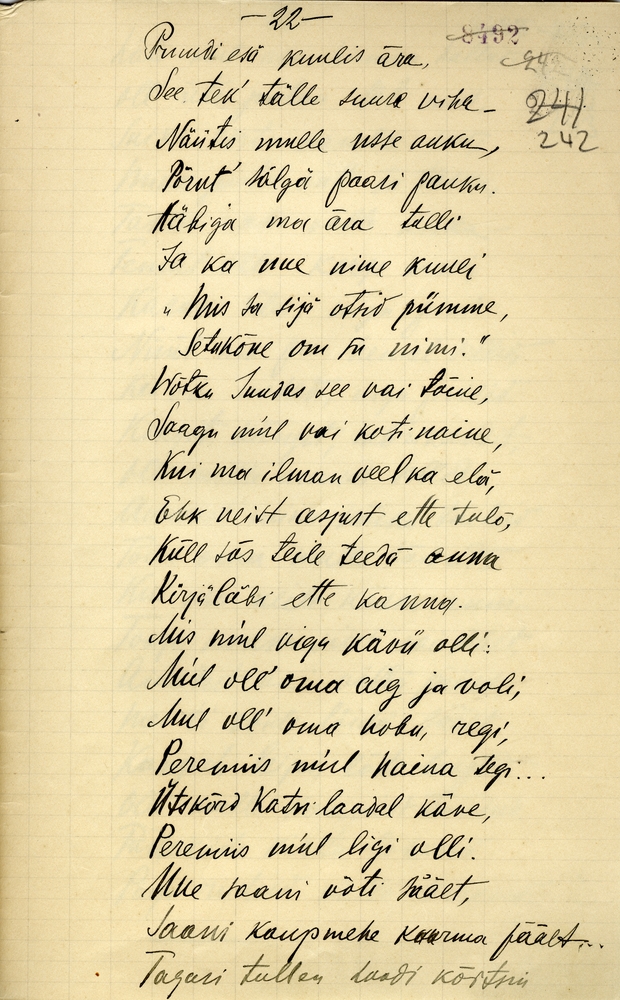 -22-
8492
242
241
242
Pruudi esä kuulis ära,
See tek' tälle suure viha -
Näütis mulle usse auku,
Põrut' sälgä paari pauku.
Häbiga ma ära tulli
Ja ka uue nime kuuli
„Mis sa sijä otsid pümme,
Setukõne om su nimi."
Wõtku Juudas see vai tõine,
Saagu miul vai koti naine,
Kui ma ilman veel ka elä,
Ehk neist asjust ette tulõ,
Küll sõs teile teedä anna
Kirjä läbi ette kanna.
Mis miul viga käviï olli:
Miul oll' oma aig ja voli,
Mul oll' oma hobu, regi,
Peremiis miul haina tegi...
Ütskõrd Katri laadal käve,
Peremiis miul ligi olli.
Uue saani võti säält,
Saani kaupmehe kuurma päält...
Tagasi tullen kõrtsin